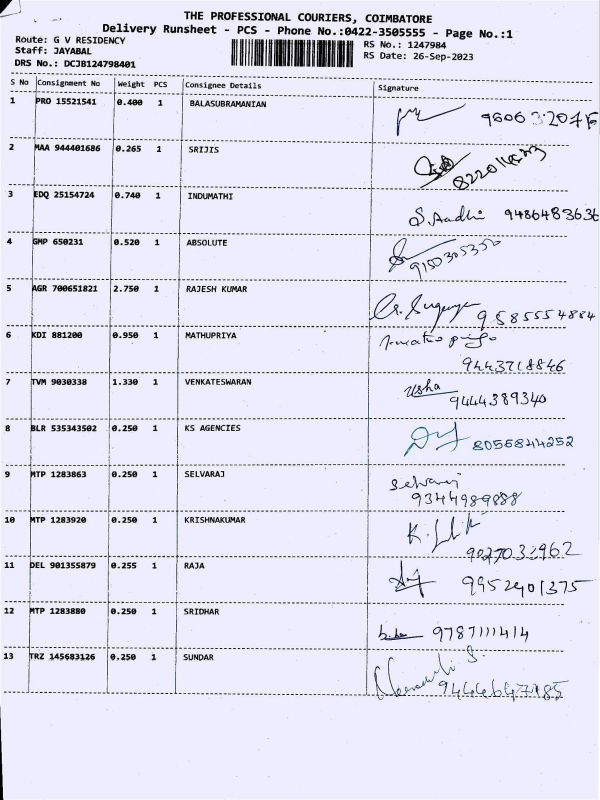 THE PROFESSIONAL COURIERS, COIMBATORE
Delivery Runsheet - PCS - Phone No.:0422-3505555 - Page No.:1
Route: G V RESIDENCY
Staff: JAYABAL
DRS No.: DCJB124798401
RS No.: 1247984
RS Date: 26-Sep-2023
S No Consignment No Weight PCS Consignee Details Signature
1 PRO 15521541 0.400 1 BALASUBRAMANIAN
2 MAA 944401686 0.265 1 SRIJIS
3 EDQ 25154724 0.740 1 INDUMATHI S. Aadhi 9486483636
4 GMP 650231 0.520 1 ABSOLUTE 9150305350
5 AGR 700651821 2.750 1 RAJESH KUMAR 9585554884
6 KDI 881200 0.950 1 MATHUPRIYA
9443718846
7 TVM 9030338 1.330 1 VENKATESWARAN Usha
9444389340
8 BLR 535343502 0.250 1 KS AGENCIES 8056844252
9 MTP 1283863 0.250 1 SELVARAJ Selvaraj
9344989888
10 MTP 1283920 0.250 1 KRISHNAKUMAR
9027032962
11 DEL 901355879 0.255 1 RAJA 9952901375
12 MTP 1283880 0.250 1 SRIDHAR 9787111414
13 TRZ 145683126 0.250 1 SUNDAR